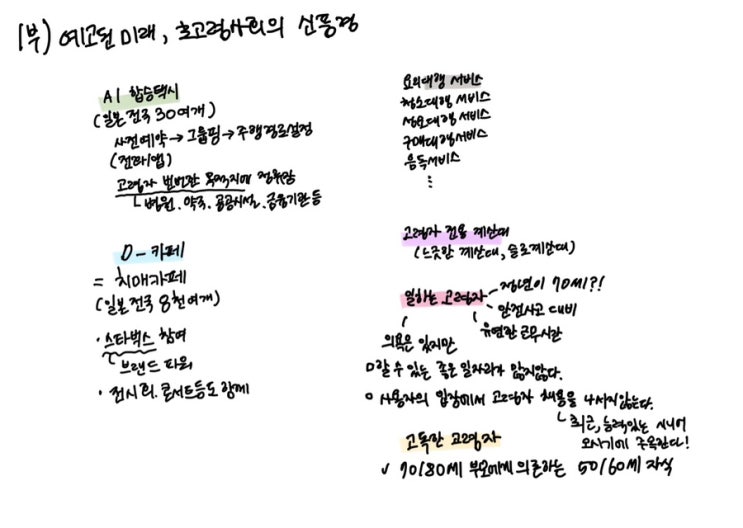 1부) 예고된 미래, 초고령사회의 신풍경
AI 합승택시
(일본 전국 30여개)
사전예약→그룹핑→주행경로설정
(전화/앱)
고령자 빈번한 목적지에 정류장
병원. 약국. 공공시설. 금융기관 등
D-카페
= 치매카페
(일본전국 8천여개)
· 스타벅스 참여
브랜드 파워
· 전시회. 콘서트등도 함께
요리대행 서비스
청소대행 서비스
성묘대행 서비스
구매대행서비스
음독서비스
⋮
고령자 전용 계산대
(느긋한 계산대, 슬로계산대)
일하는 고령자
정년이 70세?!
안전사고 대비
유연한 근무시간
의욕은 있지만
할 수 있는 좋은 일자리가 많지않다.
사용자의 입장에서 고령자 채용을 선호하지않는다.
최근, 능력있는 시니어
모시기에 주목한다!
고독한 고령자
✓ 70/80세 부모에게 의존하는 50/60세 자식